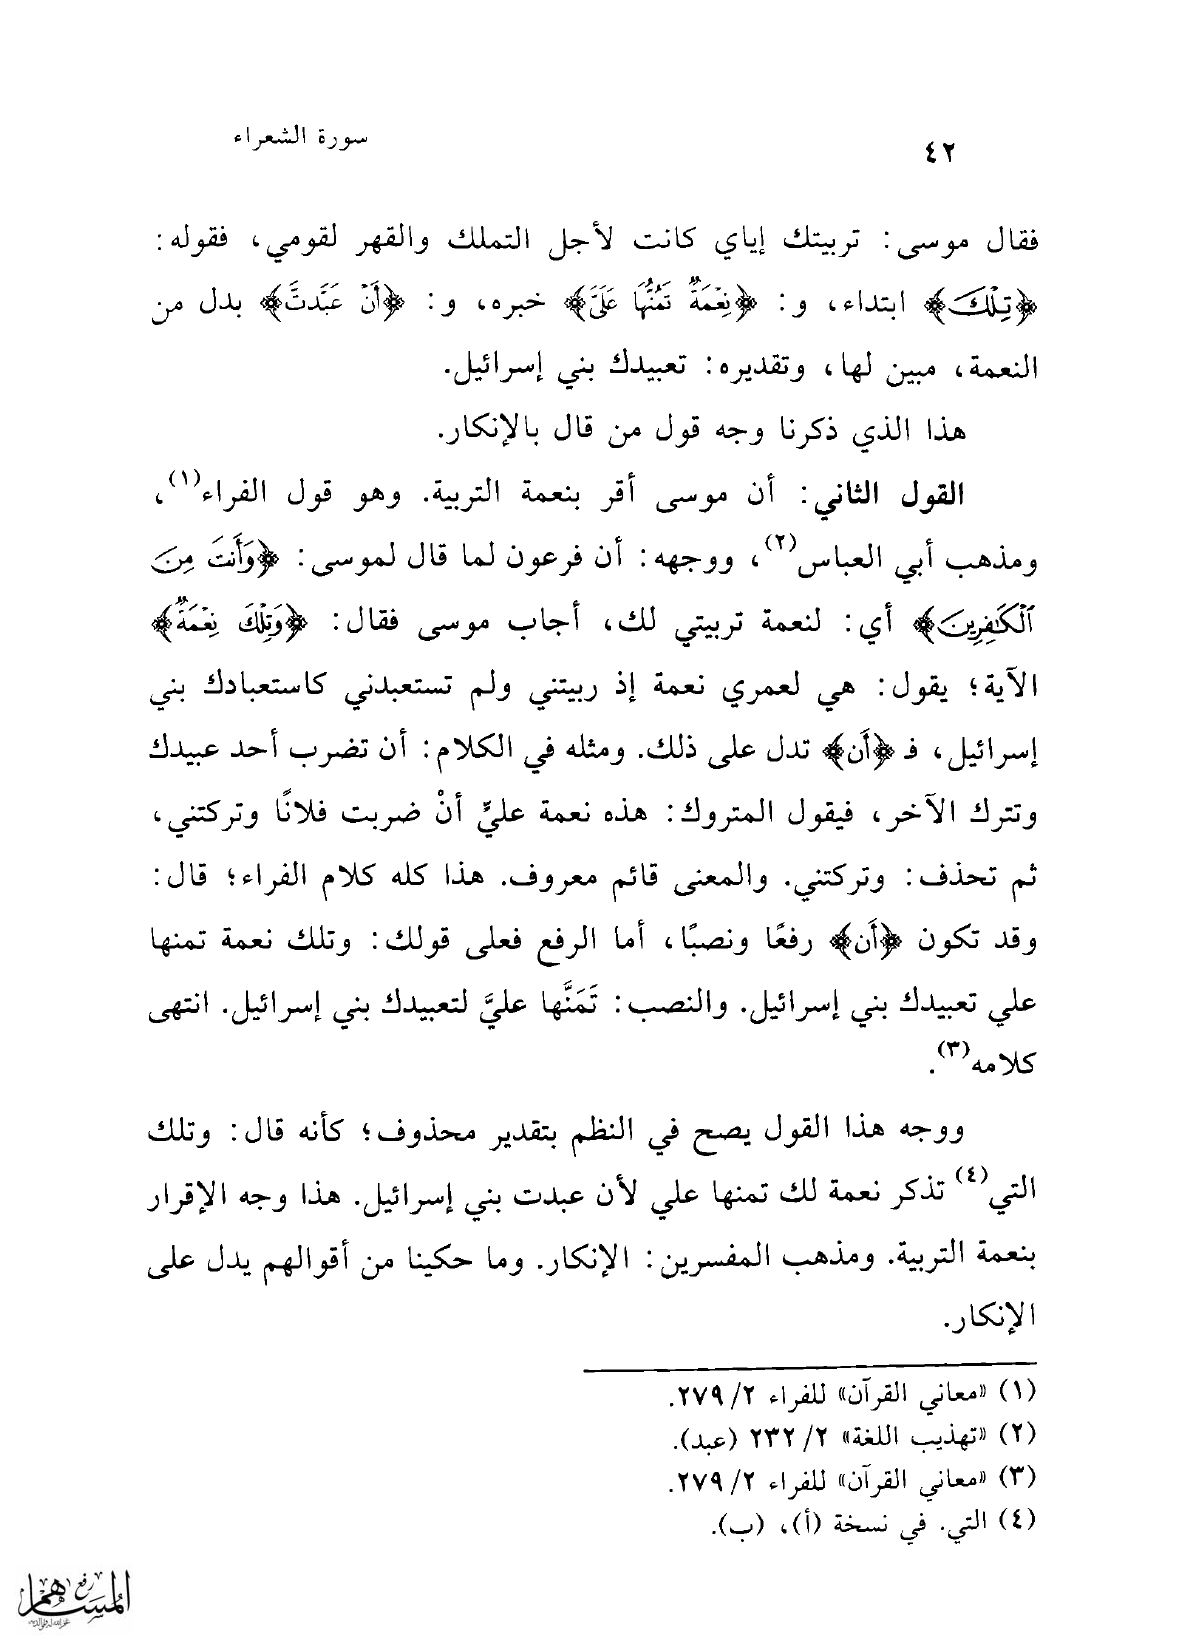 ٤٢
سورة الشعراء
فقال موسى: تربيتك إياي كانت لأجل التملك والقهر لقومي، فقوله:
﴿تِلْكَ﴾ ابتداء، و: ﴿نِعْمَةٌ تَمُنُّهَا عَلَيَّ﴾ خبره، و: ﴿أَنْ عَبَّدتَّ﴾ بدل من
النعمة، مبين لها، وتقديره: تعبيدك بني إسرائيل.
هذا الذي ذكرنا وجه قول من قال بالإنكار.
القول الثاني: أن موسى أقر بنعمة التربية. وهو قول الفراء(١)،
ومذهب أبي العباس(٢)، ووجهه: أن فرعون لما قال لموسى: ﴿وَأَنتَ مِنَ
ٱلْكَٰفِرِينَ﴾ أي: لنعمة تربيتي لك، أجاب موسى فقال: ﴿وَتِلْكَ نِعْمَةٌ﴾
الآية؛ يقول: هي لعمري نعمة إذ ربيتني ولم تستعبدني كاستعبادك بني
إسرائيل، فـ ﴿أَن﴾ تدل على ذلك. ومثله في الكلام: أن تضرب أحد عبيدك
وتترك الآخر، فيقول المتروك: هذه نعمة عليَّ أنْ ضربت فلانًا وتركتني،
ثم تحذف: وتركتني. والمعنى قائم معروف. هذا كله كلام الفراء؛ قال:
وقد تكون ﴿أَن﴾ رفعًا ونصبًا، أما الرفع فعلى قولك: وتلك نعمة تمنها
علي تعبيدك بني إسرائيل. والنصب: تَمَنَّها عليَّ لتعبيدك بني إسرائيل. انتهى
كلامه(٣).
ووجه هذا القول يصح في النظم بتقدير محذوف؛ كأنه قال: وتلك
التي(٤) تذكر نعمة لك تمنها علي لأن عبدت بني إسرائيل. هذا وجه الإقرار
بنعمة التربية. ومذهب المفسرين: الإنكار. وما حكينا من أقوالهم يدل على
الإنكار.
(١) «معاني القرآن» للفراء ٢/ ٢٧٩.
(٢) «تهذيب اللغة» ٢/ ٢٣٢ (عبد).
(٣) «معاني القرآن» للفراء ٢/ ٢٧٩.
(٤) التي. في نسخة (أ)، (ب).
رفع
المساهم